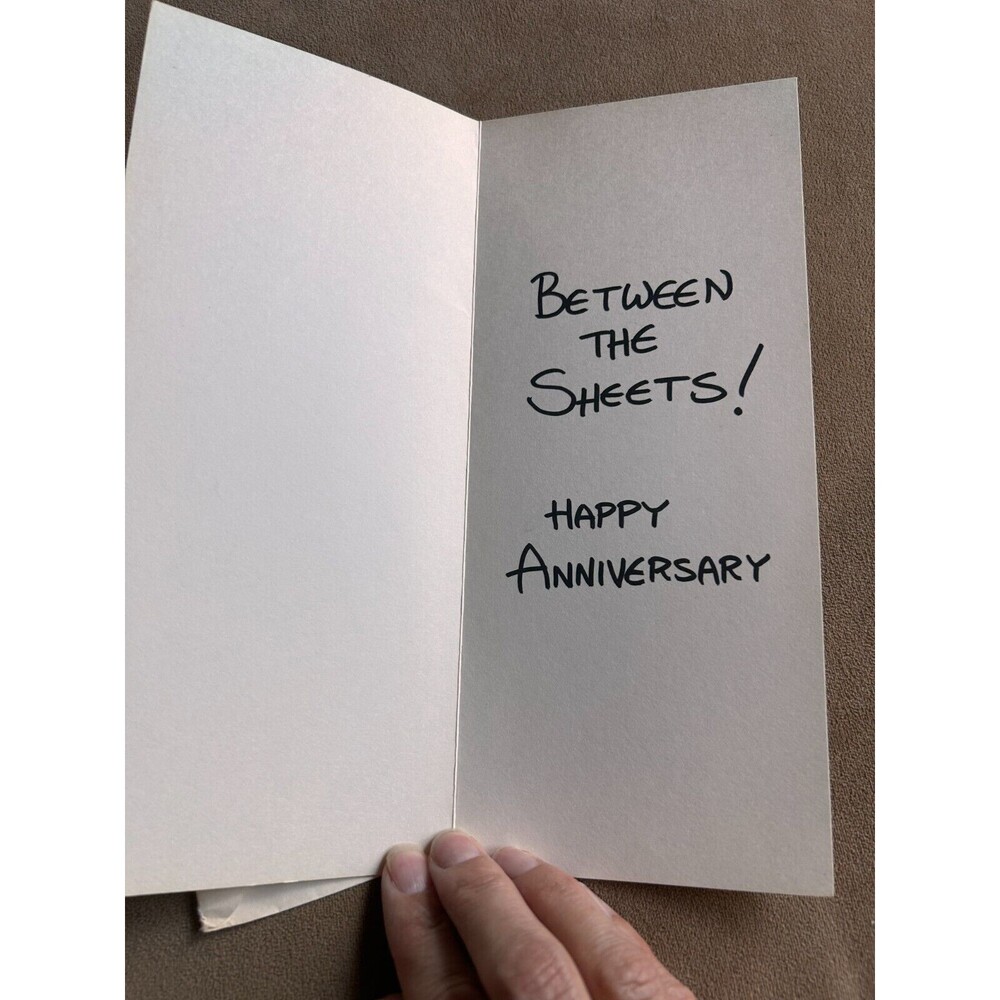 BETWEEN
THE
SHEETS!
HAPPY
ANNIVERSARY